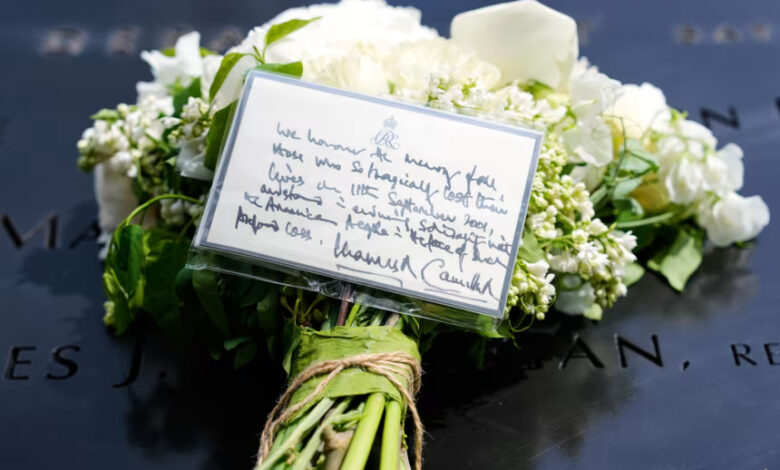 We honour the memory of all
those who so tragically lost their
lives on 11th September 2001,
and stand in enduring solidarity with
the American People in the face of their
profound loss.
Charles R Camilla R
MA
N
ES J.
AN, RE